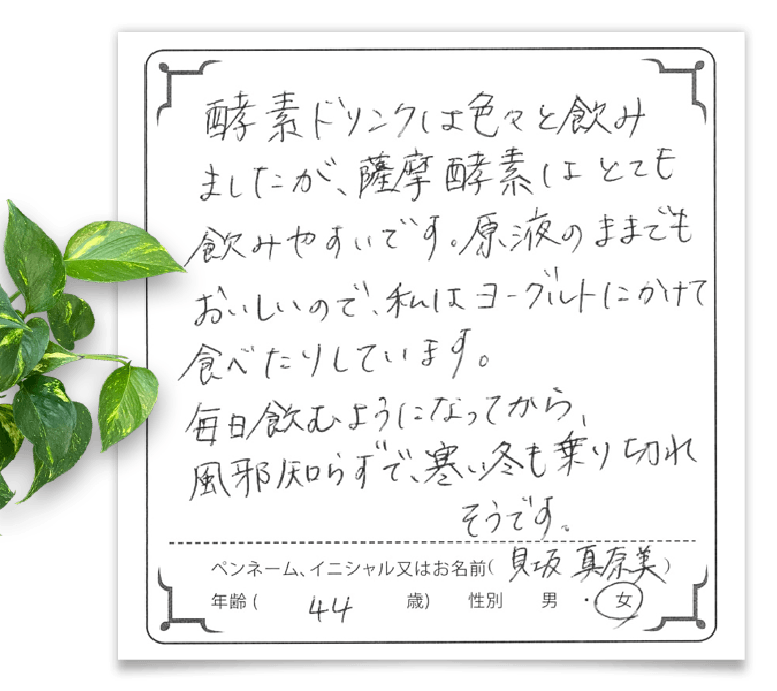 酵素ドリンクは色々と飲み
ましたが、薩摩酵素はとても
飲みやすいです。原液のままでも
おいしいので、私はヨーグルトにかけて
食べたりしています。
毎日飲むようになってから、
風邪知らずで、寒い冬も乗り切れ
そうです。
ペンネーム、イニシャル又はお名前(貝坂 真奈美)
年齢(44歳) 性別 男・女